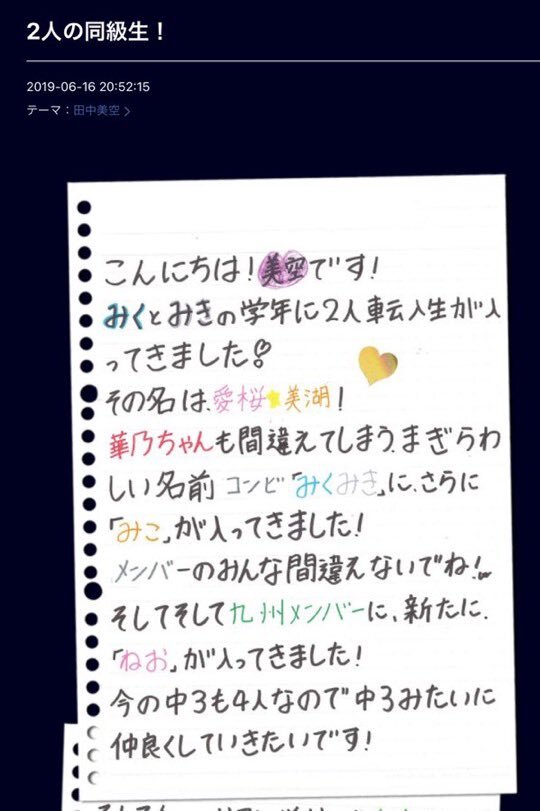 2人の同級生！
2019-06-16 20:52:15
テーマ：田中美空 >
こんにちは！美空です！
みくとみきの学年に2人転入生が入
ってきました！
その名は、愛桜⭐美湖！
華乃ちゃんも間違えてしまう、まぎらわ
しい名前コンビ「みくみき」に、さらに
「みこ」が入ってきました！
メンバーのみんな間違えないでね！
そしてそして九州メンバーに、新たに、
「ねお」が入ってきました！
今の中3も4人なので中3みたいに
仲良くしていきたいです！